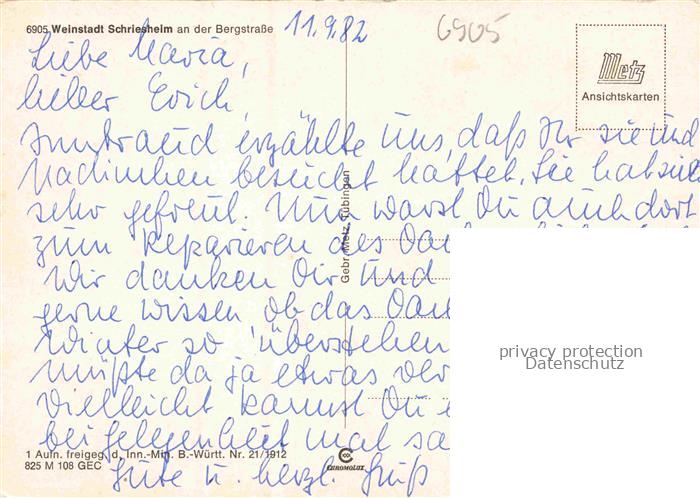 6905 Weinstadt Schriesheim an der Bergstraße 11.9.82 6905
Metz
Ansichtskarten
Liebe Maria,
lieber Erich,
Irmtraud erzählte uns, daß Ihr sie und
Nadinchen besucht hattet. Sie hat sich
sehr gefreut. Nun warst Du auch dort
zum Reparieren des
Wir danken Dir und
gerne wissen ob das
Winter so überstehen
müßte da ja etwas
vielleicht kannst Du
bei Gelegenheit mal
Gute u. herzl. Grüß
Gebr. Metz, Tübingen
privacy protection
Datenschutz
1 Aufn. freigeg. d. Inn.-Min. B.-Württ. Nr. 21/1912
825 M 108 GEC
CHROMOLUX